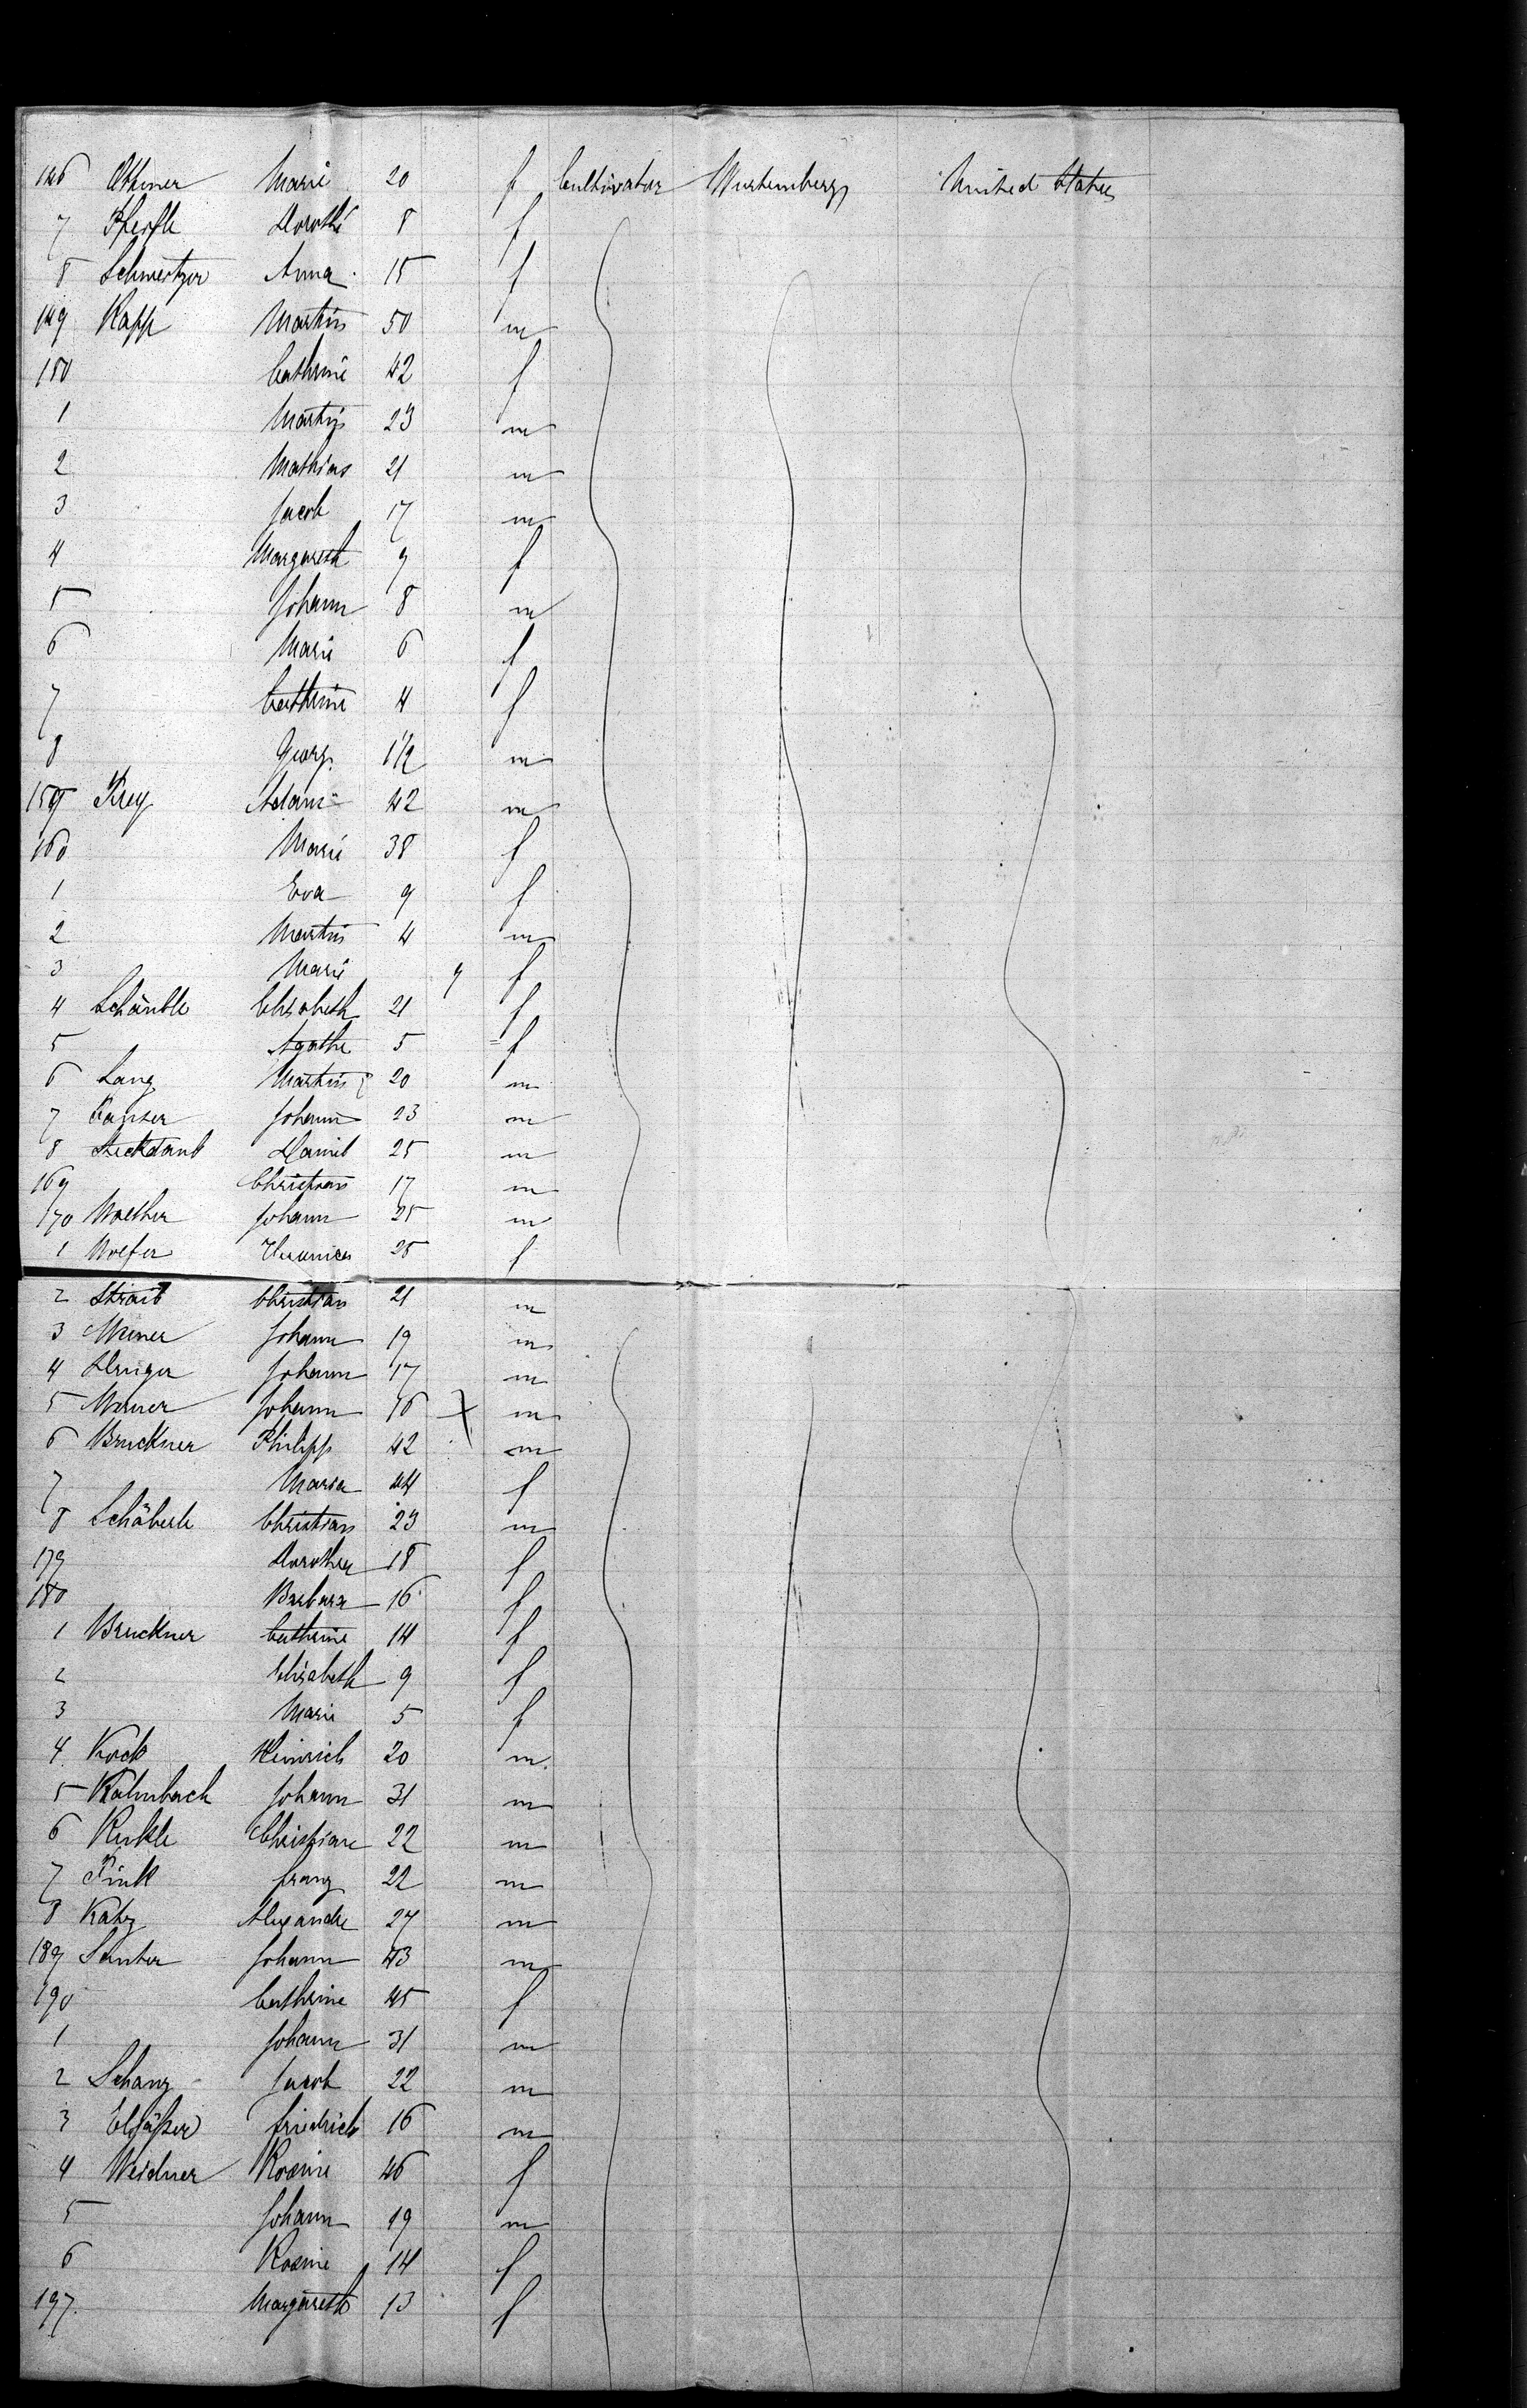 146 Othmer Marie 20 f Cultivator Wurtemberg United States
7 Pfeifle Dorothé 8 f
8 Schweitzer Anna 15 f
149 Rapp Martin 50 m
150 Cathrine 42 f
1 Martin 23 m
2 Mathias 21 m
3 Jacob 17 m
4 Margareth 9 f
5 Johann 8 m
6 Marie 6 f
7 Cathrine 4 f
8 Georg 1 1/2 m
159 Frey Adam 42 m
160 Marie 38 f
1 Eva 9 f
2 Martin 4 m
3 Marie 9 f
4 Schäuble Elisabeth 21 f
5 Agathe 5 f
6 Lang Martin 20 m
7 Ganser Johann 23 m
8 Steckdaub Daniel 25 m
169 Christian 17 m
170 Walther Johann 25 m
1 Wolfer 25 f
2 Straib Christian 21 m
3 Werner Johann 19 m
4 Johann 17 m
5 Werner Johann 16 X m
6 Bruckner Philipp 42 m
7 Maria 44 f
8 Schäberle Christian 23 m
179 Dorothea 18 f
180 Barbara 16 f
1 Bruckner Cathrine 14 f
2 Elisabeth 9 f
3 Marie 5 f
4 Koch Heinrich 20 m
5 Kalmbach Johann 31 m
6 Christian 22 m
7 Fink Franz 22 m
8 Katz Alexandre 27 m
189 Sauter Johann 43 m
190 Cathrine 45 f
1 Johann 31 m
2 Schanz Jacob 22 m
3 Elsäßer Friedrich 16 m
4 Weidner Rosine 46 f
5 Johann 19 m
6 Rosine 14 f
197. Margareth 13 f